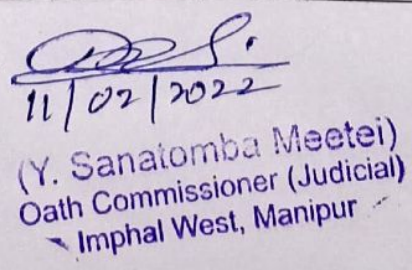 11/02/2022
(Y. Sanatomba Meetei)
Oath Commissioner (Judicial)
Imphal West, Manipur